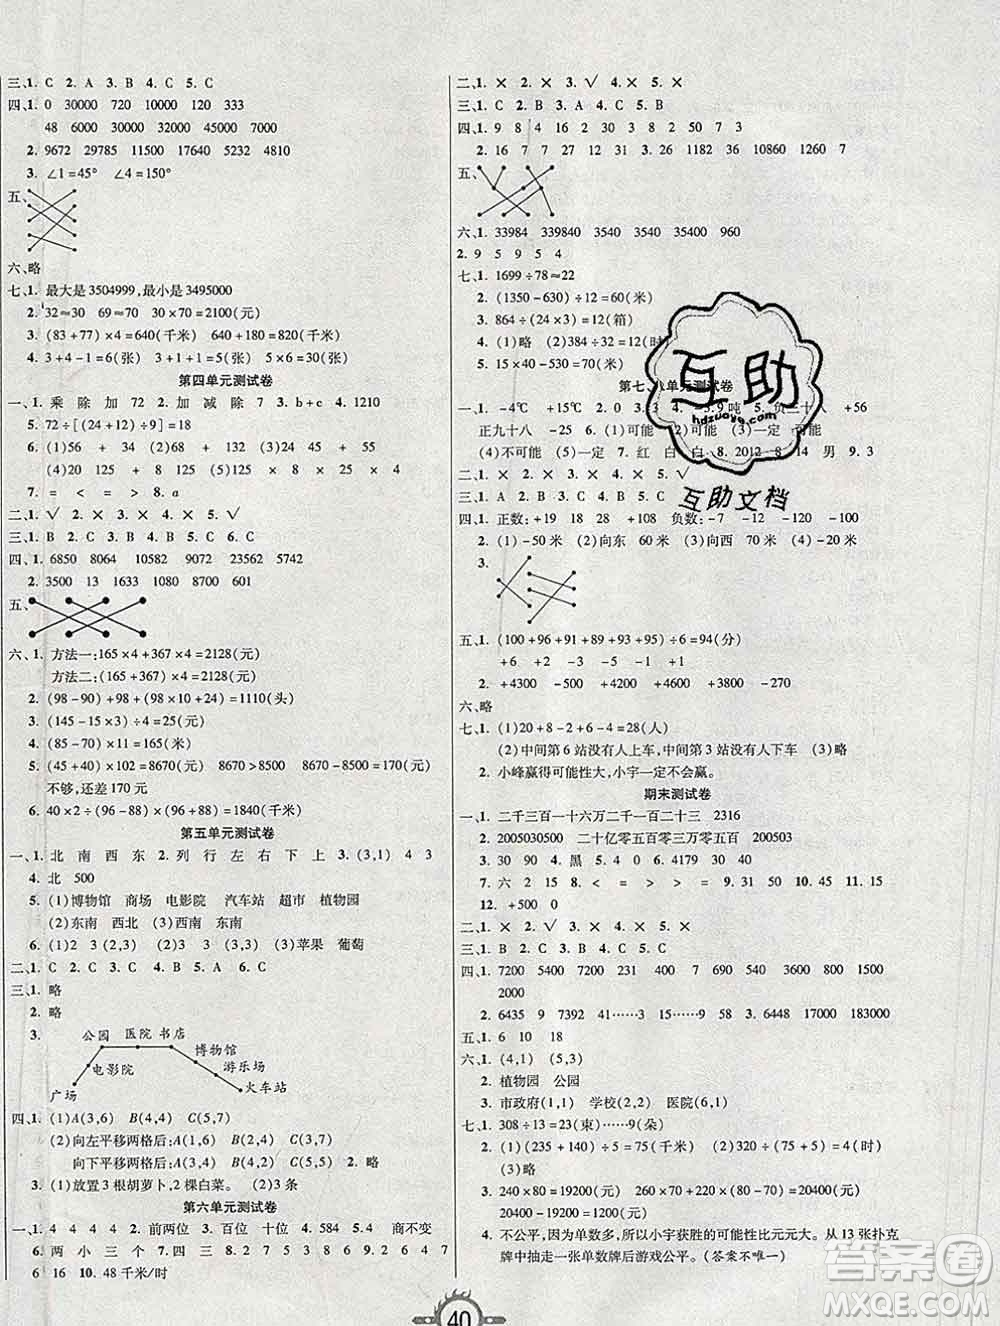 三、1. C 2. A 3. B 4. C 5. C
四、1. 0 30000 720 10000 190 333
48 6000 30000 2000 45000 7000
2. 9672 29785 11900 17640 5232 4810
3. ∠1=45° ∠4=150°
五、
六、略
七、1. 最大是3504999,最小是3495000
2. 32≈30 69≈70 30×70=2100(元)
3. (83+77)×4=640(千米) 640+180=820(千米)
4. 3+4-1=6(张) 3+1+1=5(张) 6×5=30(元)
第四单元测试卷
一、1. 乘 除 加 72 2. 加 减 除 7 3. b+c 4. 1210
5. 72÷[(24+12)÷9]=18
6. (1)50 + 56 + 34 (2)68 + 24 + (3)54 + 55
(4)20 125 + 8 125 (5)100 × 8 × 25 × 4
7. = < = > 8. a
二、1. √ 2. × 3. × 4. × 5. √
三、1. B 2. C 3. B 4. B 5. C 6. C
四、1. 6850 8064 10582 9092 23657 5742
2. 3500 13 1633 1080 8700 601
五、
六、1. 方法一:165×4+367×4=2128(元)
方法二:(165+367)×4=2128(元)
2. (98-90)+98+(98×10+24)=1110(头)
3. (145-15×3)÷4=25(元)
4. (85-70)×11=165(米)
5. (45+40)×102=8670(元) 8670>8500 8670-8500=170(元)
不够,还差170元
6. 40×2÷(96-88)×(96+88)=1840(千米)
第五单元测试卷
一、1. 北 南 西 东 2. 列 行 左 右 下 上 3. (3,1) 4 3
4. 北 500
5. (1)博物馆 商场 电影院 汽车站 超市 植物园
(2)东南 西北 (3)西南 东南
6. (1)2 3 (2,3) (2)3 2 (3,2) (3)苹果 葡萄
二、1. C 2. C 3. C 4. B 5. A 6. C
三、1. 略
2. 略
3.
公园 医院 书店
博物馆
电影院 游乐场
广场 火车站
四、1. (1)A(3,6) B(4,4) C(5,7)
(2)向左平移两格后:A(1,6) B(2,4) C(3,7)
向下平移两格后:A(3,4) B(4,2) C(5,5) 2. 略
3. (1)放置3根胡萝卜,2棵白菜。 (2)3条
第六单元测试卷
一、1. 4 4 4 4 2. 前两位 3. 百位 十位 4. 584 5. 4 商不变
6. 两 小 三 个 7. 四 三 8. 2 7 6 2 7 6 9. 3 2 4 8 7
6 16 10. 48千米/时
二、1. × 2. × 3. √ 4. × 5. ×
三、1. C 2. B 3. A 4. C 5. B
四、1. 9 8 4 16 2 30 3 8 2 50 7 3
2. 16 7 127 12 7 11 3. 26 1182 36 10860 1260 7
五、
六、1. 33984 339840 3540 3540 35400 960
2. 9 5 9 5 4
七、1. 1699÷78≈22
2. (1350-630)÷12=60(米)
3. 864÷(24×3)=12(箱)
4. (1)略 (2)384÷32=12(时)
5. 15×40-530=70(米)
第七、八单元测试卷
一、1. -4℃ +15℃ 2. 0 3. 3 4. -3.9吨 5. 负二十八 +56
正九十八 -25 6. (1)可能 (2)可能 (3)一定 可能
(4)不可能 (5)一定 7. 红 白 白 8. 2012 8 14 男 9. 3
二、1. × 2. × 3. × 4. × 5. √
三、1. A 2. B 3. C 4. C
四、1. 正数:+19 18 28 +108 负数:-7 -12 -120 -100
2. (1)-50米 (2)向东 60米 (3)向西 70米 (4)-20米
3.
五、1. (100+96+91+89+97+91)÷6=94(分)
+6 +2 -3 -5 +3 -3
2. +4300 -500 -1000 +3800 -270
六、略
七、1. (1)20+8-2+6-4=28(人)
(2)中间第6站没有人上车,中间第3站没有人下车 (3)略
2. 小峰赢得可能性大,小宇一定不会赢。
期末测试卷
一、1. 二千三百一十六万二千一百二十三 2316
2. 2005030500 二十亿零五百零三万零五百 200503
3. 30 90 4. 黑 5. 4 0 6. 4179 30 40
7. 六 2 15 8. < = > = 9. 31 50 10. 45 11. 7
12. +500 0
二、1. × 2. √ 3. × 4. × 5. ×
三、1. B 2. C 3. C 4. C 5. B
四、1. 7200 5400 7200 231 400 600 7200 2200 120
2000
2. 6435 9 7392 41……3 15……9 58 3. 6448 15000 83
五、1. 6 10 18
六、1. (4,1) (5,3)
2. 植物园 公园
3. 市政府(1,1) 学校(2,4) 医院(6,1)
七、1. 308÷13=23(束)……9(朵)
2. (1)(235+140)÷5=75(千米) (2)320÷(75+5)=4(时)
3. 500×40=20000(元) 480×40=19200(元)
510×40=20400(元) 20000-19200=800(元)
20400-19200=1200(元)
4. 不公平,因为单数多,所以小宇获胜的可能性比元元大。从13张扑克
牌中抽走一张单数牌后游戏公平。(答案不唯一)
互助
hdzuoye.com
互助文档
答案圈
MXQE.COM
40